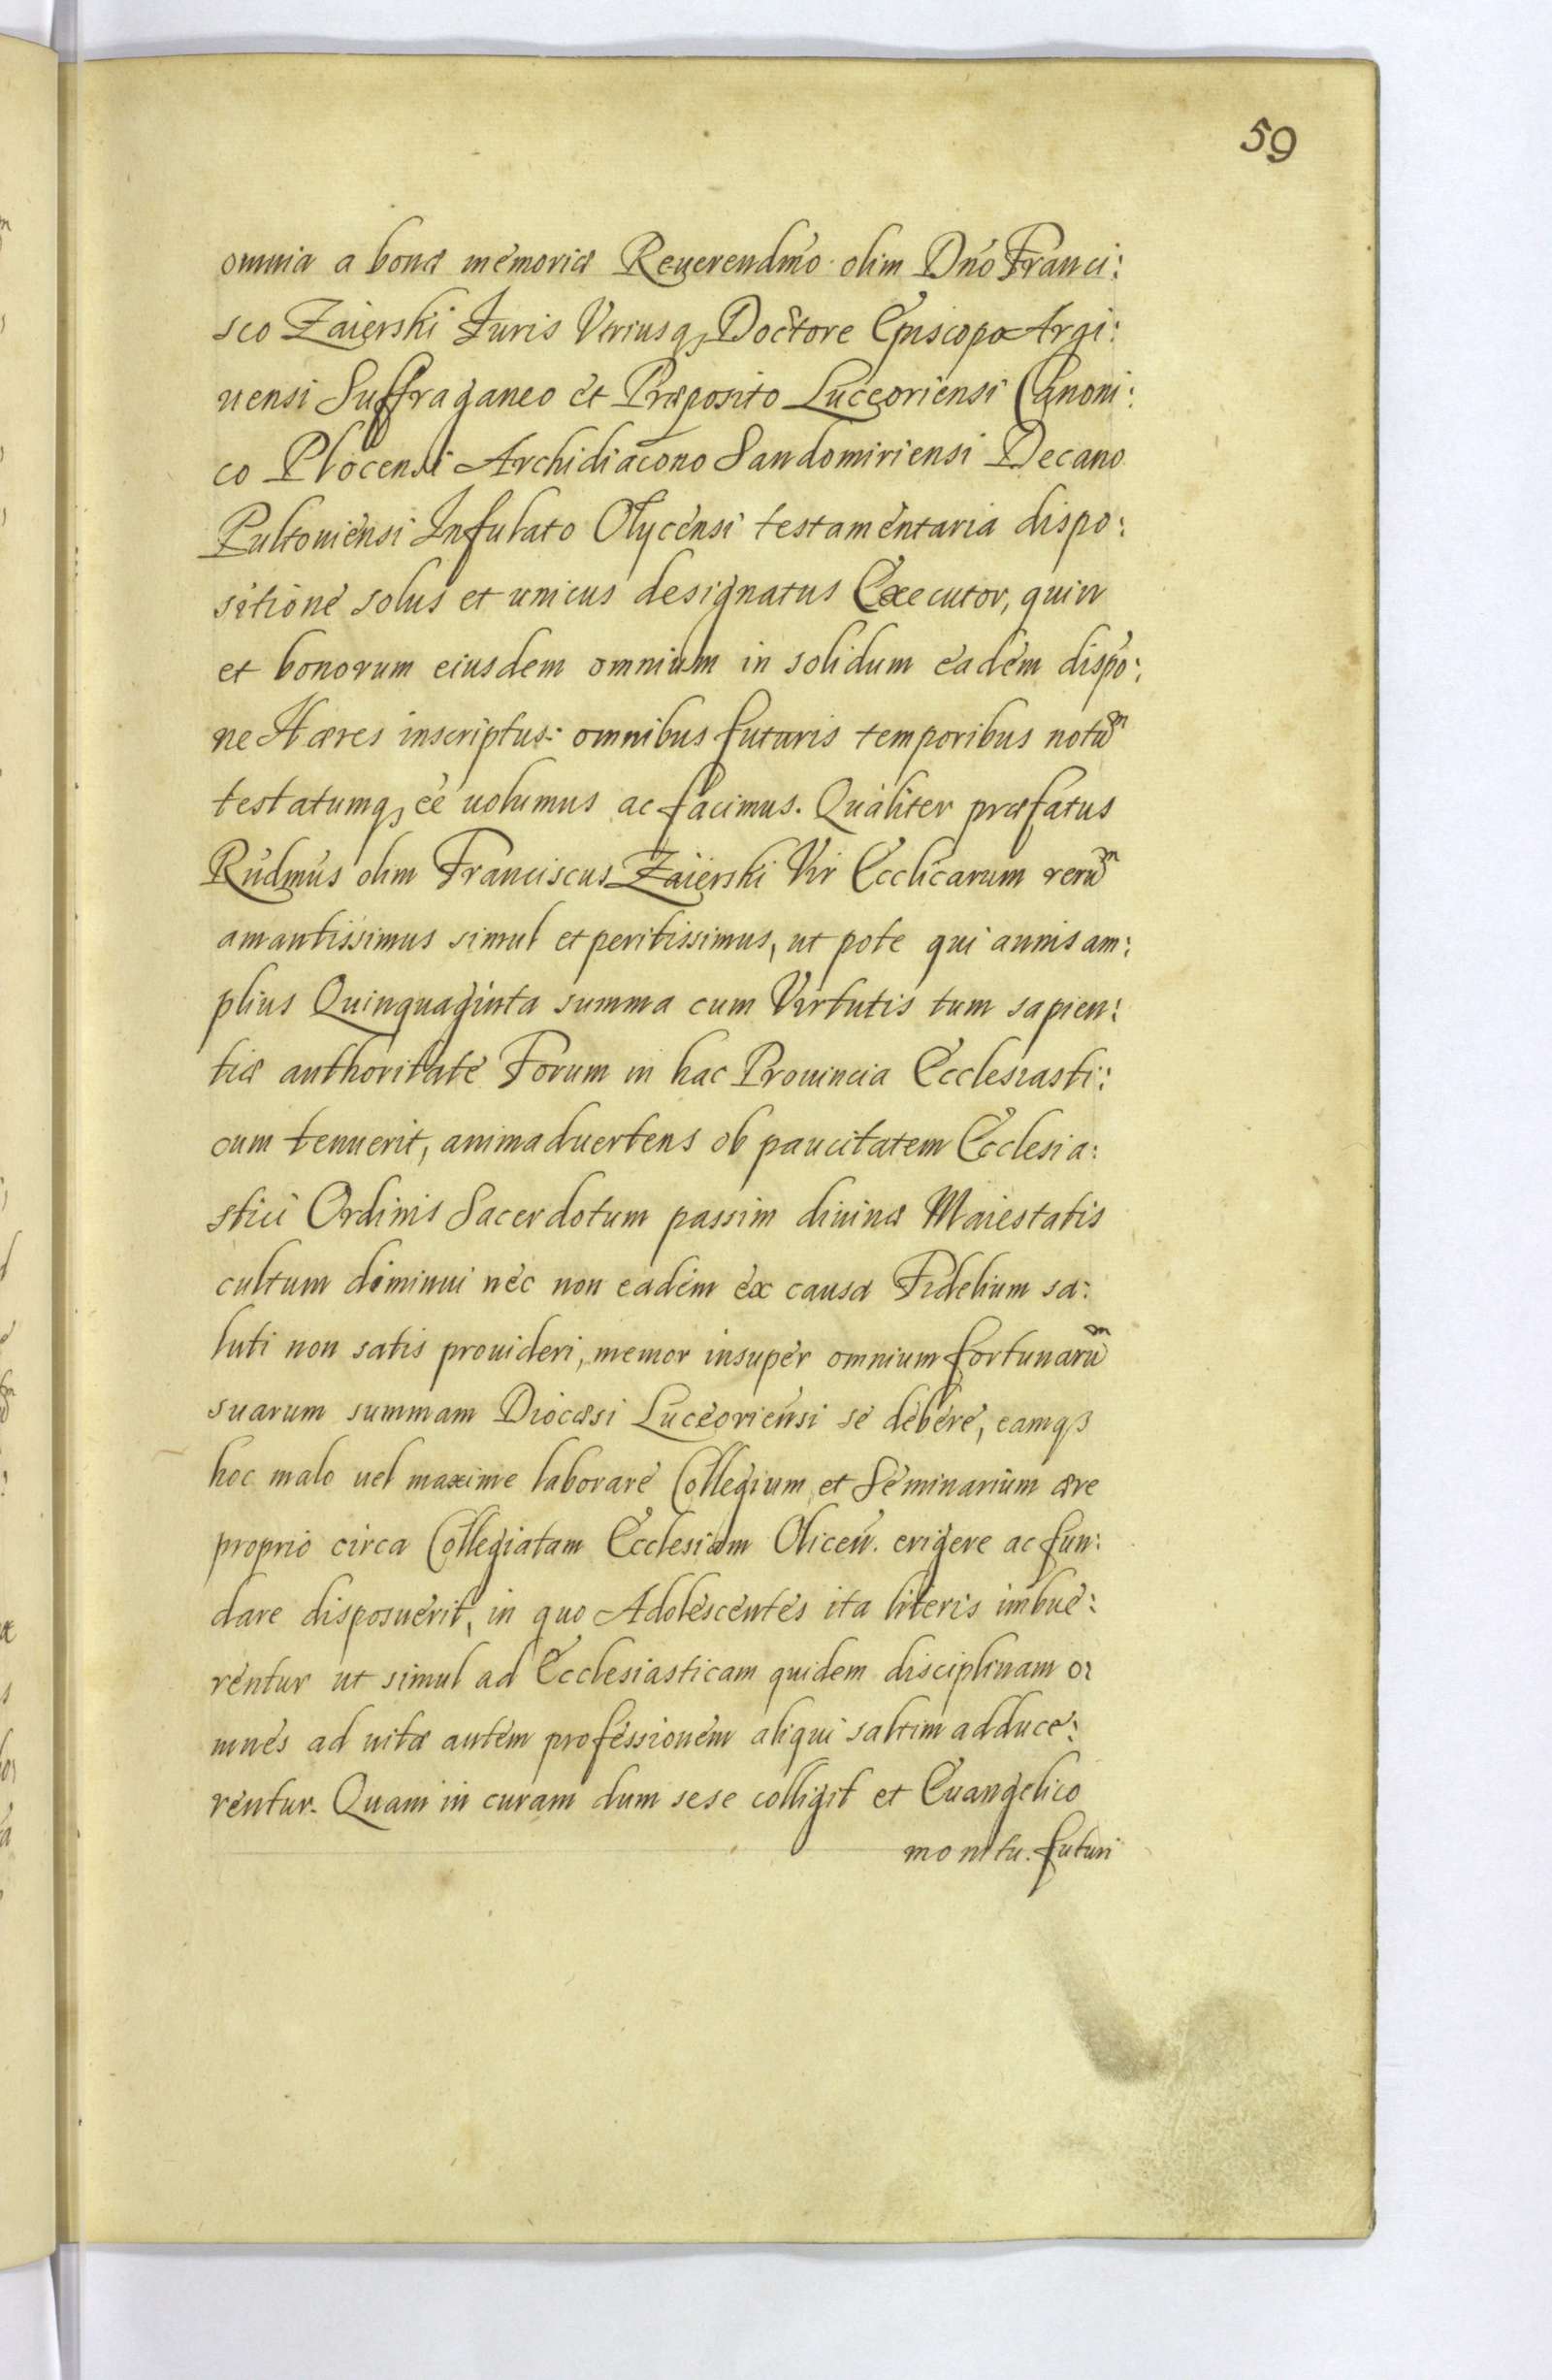 59
omnia a bonæ memoriæ Reuerendmo olim Dno Franci:
sco Zaierski Iuris Vtriusq, Doctore Episcopo Argi:
uensi Suffraganeo et Præposito Luceoriensi Canoni:
co Plocensi Archidiacono Sandomiriensi Decano
Pultouiensi Infulato Olycensi testamentaria dispo:
sitione solus et unicus designatus Executor, quin
et bonorum eiusdem omnium in solidum eadem dispo:
ne Hæres inscriptus: omnibus futuris temporibus notũ
testatumq, eē uolumus ac facimus. Qualiter præfatus
Rudmus olim Franciscus Zaierski Vir Ecclicarum rerũ
amantissimus simul et peritissimus, ut pote qui annis am:
plius Quinquaginta summa cum Virtutis tum sapien:
tiæ authoritate Forum in hac Prouincia Ecclesiasti:
cum tenuerit, animaduertens ob paucitatem Ecclesia:
stici Ordinis Sacerdotum passim diuinæ Maiestatis
cultum diminui nec non eadem ex causa Fidelium sa:
luti non satis prouideri, memor insuper omnium fortunarũ
suarum summam Diocæsi Luceoriensi se debere, eamqȝ
hoc malo uel maxime laborare Collegium et Seminarium ære
proprio circa Collegiatam Ecclesiam Olicen. erigere ac fun:
dare disposuerit, in quo Adolescentes ita literis imbue:
rentur ut simul ad Ecclesiasticam quidem disciplinam o:
mnes ad uitæ autem professionem aliqui saltim adduce:
rentur. Quam in curam dum sese colligit et Euangelico
monitu. futuri